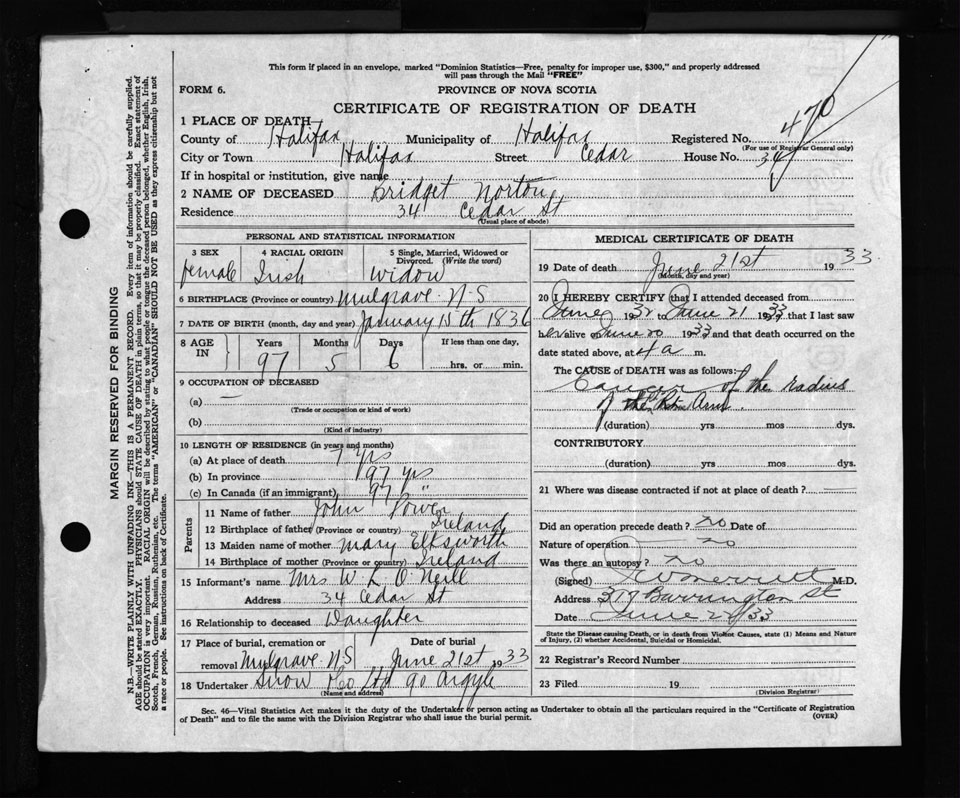 This form if placed in an envelope, marked "Dominion Statistics—Free, penalty for improper use, $300," and properly addressed
will pass through the Mail "FREE"
FORM 6.
PROVINCE OF NOVA SCOTIA
CERTIFICATE OF REGISTRATION OF DEATH
470
1 PLACE OF DEATH
County of Halifax Municipality of Halifax Registered No.
(For use of Registrar General only)
City or Town Halifax Street Cedar House No. 34
If in hospital or institution, give name
2 NAME OF DECEASED Bridget Norton
Residence 34 Cedar St
(Usual place of abode)
PERSONAL AND STATISTICAL INFORMATION
3 SEX 4 RACIAL ORIGIN 5 Single, Married, Widowed or Divorced. (Write the word)
female Irish Widow
6 BIRTHPLACE (Province or country) Mulgrave N.S
7 DATE OF BIRTH (month, day and year) January 15th 1836
8 AGE IN Years Months Days If less than one day,
97 5 6 hrs. or min.
9 OCCUPATION OF DECEASED
(a) —
(Trade or occupation or kind of work)
(b)
(Kind of industry)
10 LENGTH OF RESIDENCE (in years and months)
(a) At place of death 7 yrs
(b) In province 97 yrs
(c) In Canada (if an immigrant) 97 "
Parents
11 Name of father John Power
12 Birthplace of father (Province or country) Ireland
13 Maiden name of mother Mary Elksworth
14 Birthplace of mother (Province or country) Ireland
15 Informant's name Mrs W L O'Neill
Address 34 Cedar St
16 Relationship to deceased Daughter
17 Place of burial, cremation or Date of burial
removal Mulgrave N.S June 21st 1933
18 Undertaker Snow & Co Ltd 90 Argyle
(Name and address)
MEDICAL CERTIFICATE OF DEATH
19 Date of death June 21st 1933.
(Month, day and year)
20 I HEREBY CERTIFY that I attended deceased from
June 1932 to June 21 1933 that I last saw
her alive on June 20 1933 and that death occurred on the
date stated above, at 4 a m.
The CAUSE of DEATH was as follows:
Cancer of the radius
of the Arm.
(duration) yrs mos dys.
CONTRIBUTORY
(duration) yrs mos dys.
21 Where was disease contracted if not at place of death?
Did an operation precede death? no Date of
Nature of operation no
Was there an autopsy? no
(Signed) M.D.
Address Barrington St
Date June 33
State the Disease causing Death, or in death from Violent Causes, state (1) Means and Nature
of Injury, (2) whether Accidental, Suicidal or Homicidal.
22 Registrar's Record Number
23 Filed 19
(Division Registrar)
Sec. 46—Vital Statistics Act makes it the duty of the Undertaker or person acting as Undertaker to obtain all the particulars required in the "Certificate of Registration
of Death" and to file the same with the Division Registrar who shall issue the burial permit.
(OVER)
MARGIN RESERVED FOR BINDING
N.B.—WRITE PLAINLY WITH UNFADING INK—THIS IS A PERMANENT RECORD. Every item of information should be carefully supplied.
AGE should be stated EXACTLY. PHYSICIANS should STATE CAUSE OF DEATH in plain terms, so that it may be properly classified. Exact statement of
OCCUPATION is very important. RACIAL ORIGIN will be described by stating to what people or tongue the deceased person belonged, whether English, Irish,
Scotch, French, German, Russian, Ruthenian, etc. The terms "AMERICAN" or "CANADIAN" SHOULD NOT BE USED as they express citizenship but not
a race or people. See instructions on back of Certificate.